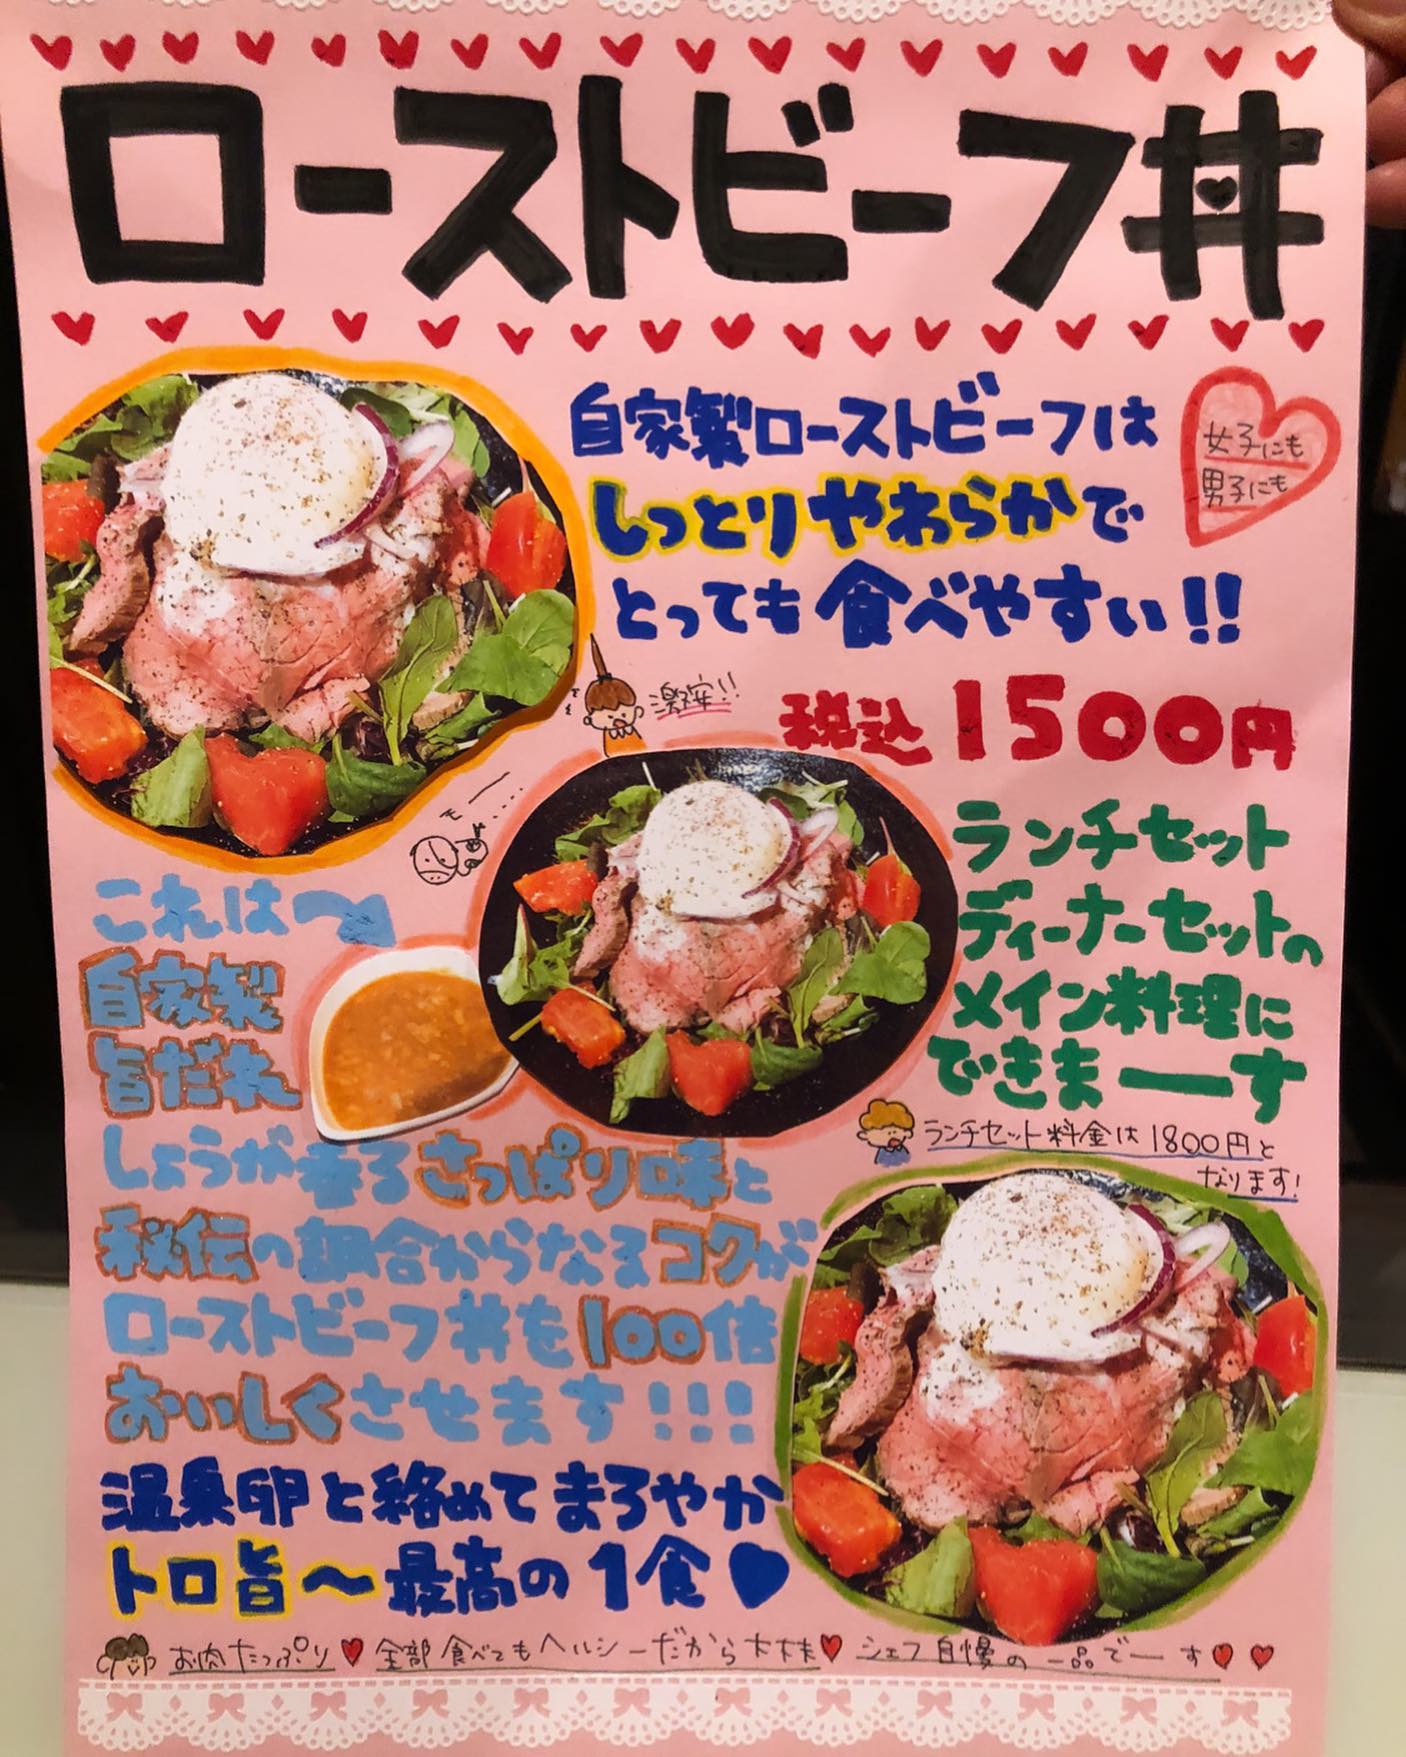 ローストビーフ丼
自家製ローストビーフは
しっとりやわらかで
とっても食べやすい!!
女子にも
男子にも
激安!!
税込1500円
モー……
ランチセット
ディーナーセットの
メイン料理に
できまーす
ランチセット料金は1800円と
なります!
これは
自家製
旨だれ
しょうが香るさっぱり味と
秘伝の調合からなるコクが
ローストビーフ丼を100倍
おいしくさせます!!!
温泉卵と絡めてまろやか
トロ旨〜最高の1食
お肉たっぷり♥全部食べてもヘルシーだから大丈夫♥シェフ自慢の一品でーす♥♥